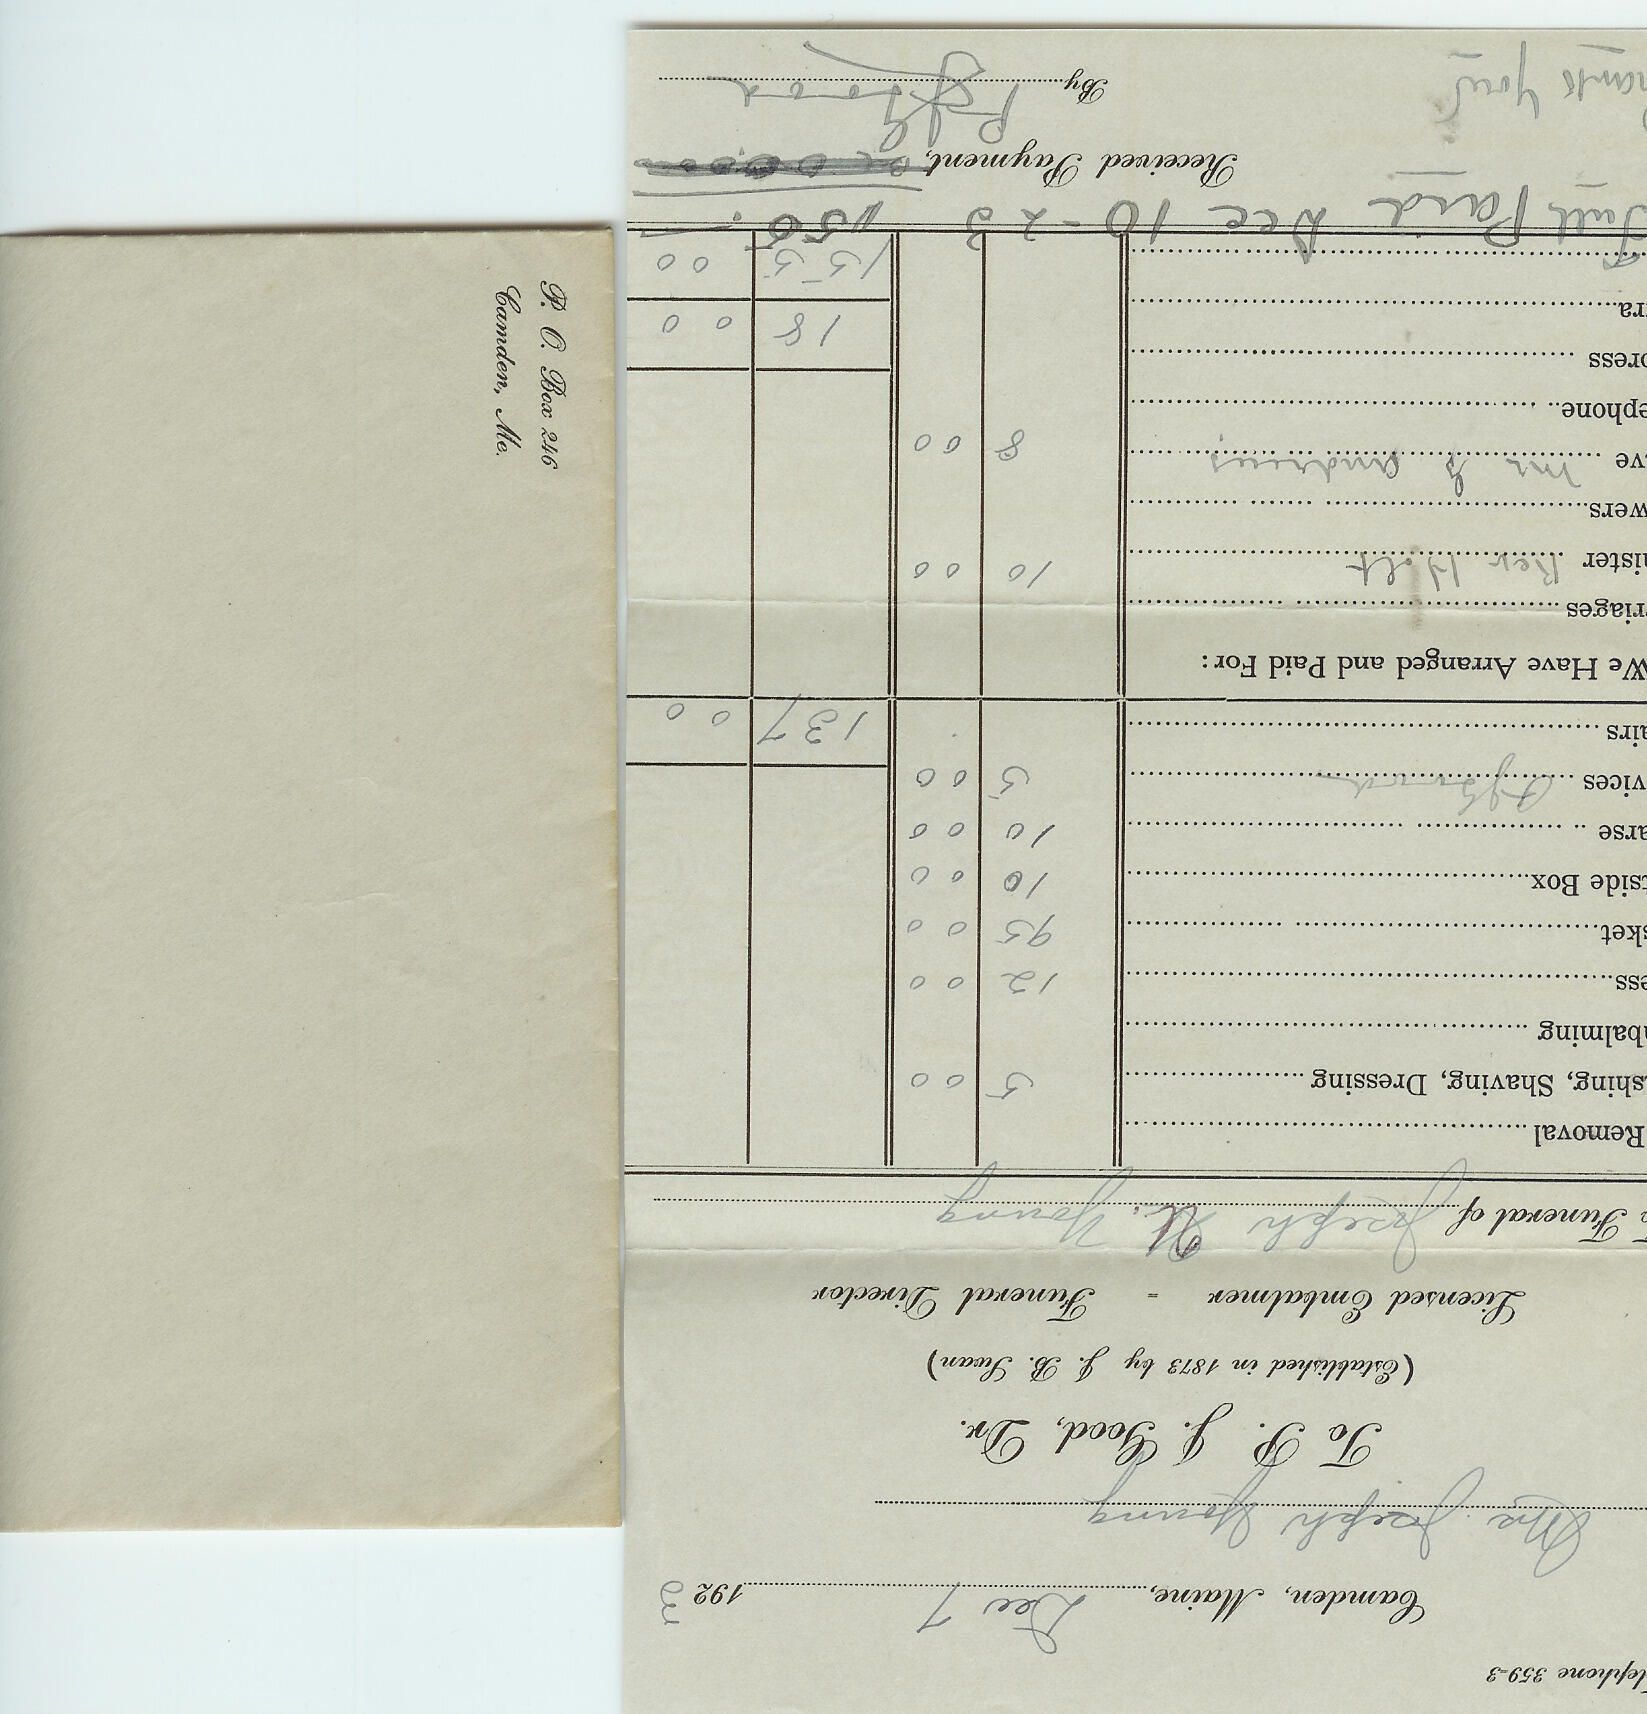 P. O. Box 246
Camden, Me.
lephone 359-3
Camden, Maine, Dec 7 1923
Mrs Joseph Young
To P. J. Good, Dr.
(Established in 1873 by J. B. Swan)
Licensed Embalmer - Funeral Director
Funeral of Joseph W. Young
Removal
shing, Shaving, Dressing 5 00
balming
ess 12 00
sket 95 00
tside Box 10 00
arse 10 00
vices 5 00
airs 137 00
We Have Arranged and Paid For:
riages
nister Rev Holt 10 00
wers
ve 8 00
ephone
press
ra 18 00
155 00
Full Paid Dec 10-23 150.
Received Payment,
hank You By P J Good